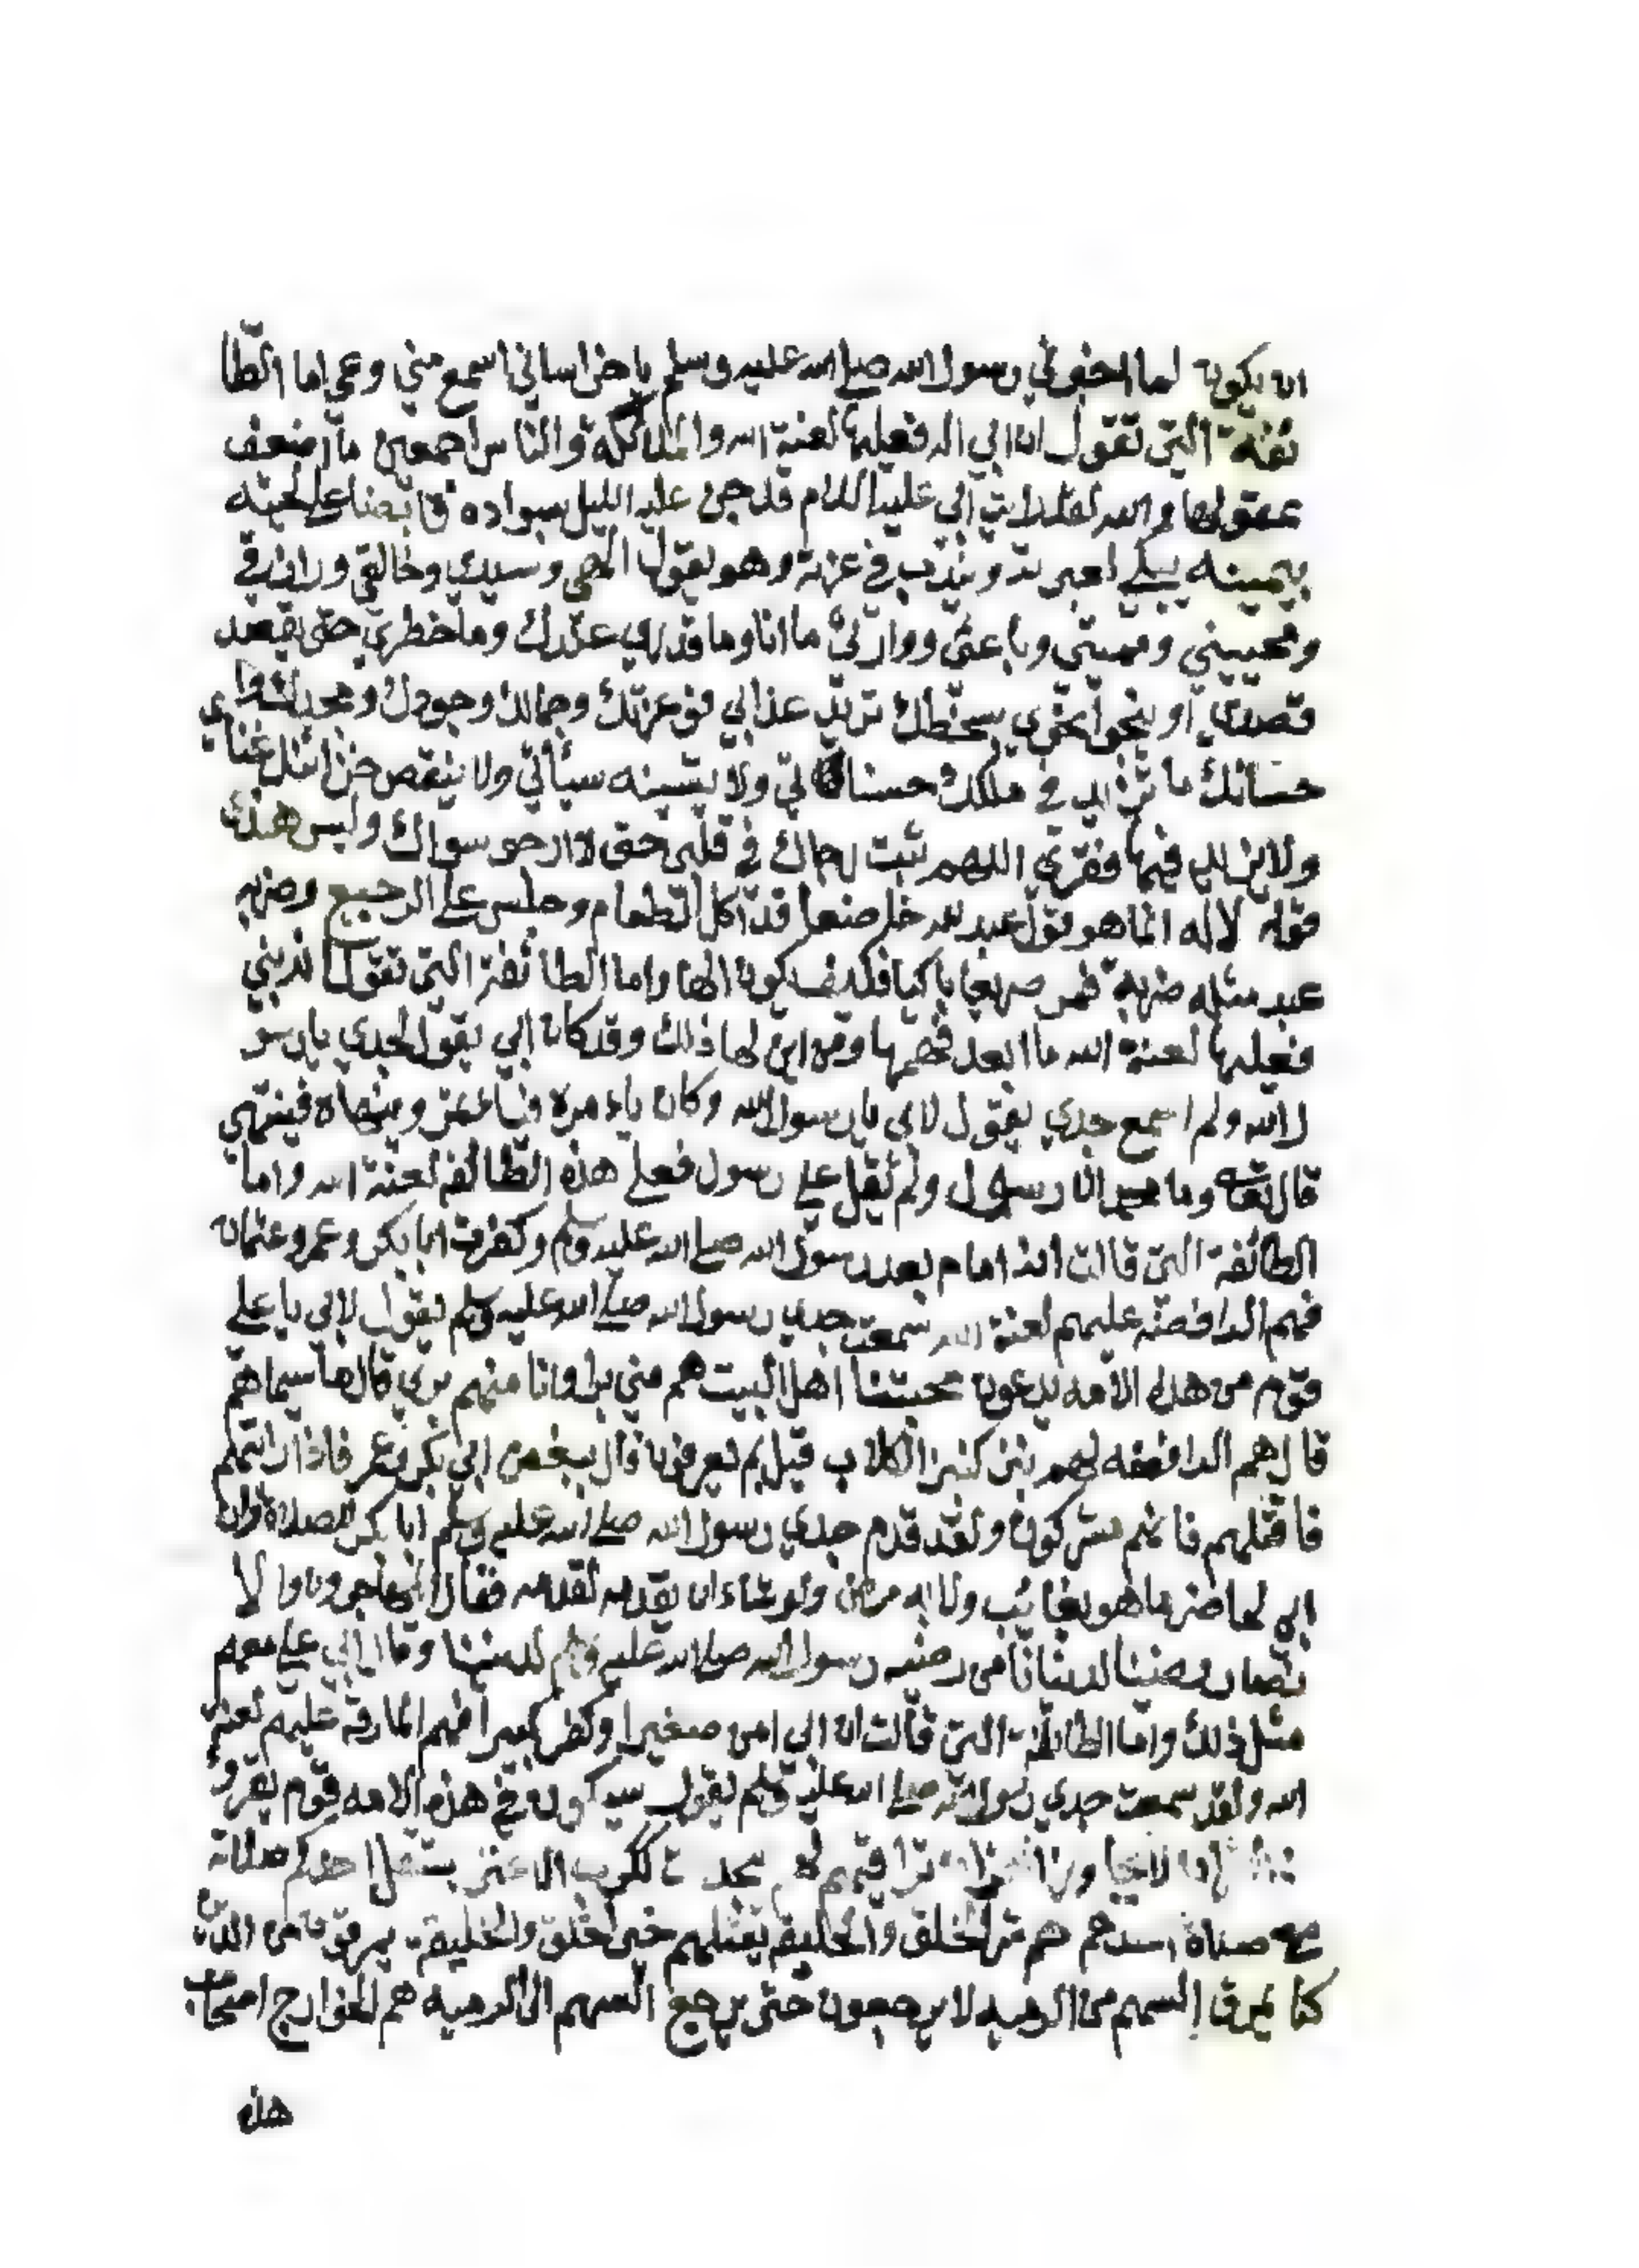 ان يكون لما اخبرني رسول الله صلى الله عليه وسلم يا خراساني اسمع مني وعي اما الطا
ئفة التي تقول ان ابي اله فعليها لعنة الله والملائكة والناس اجمعين ما اضعف
عقولها والله لقد رايت ابي عليه السلام قد جن عليه الليل بسواده قابضا على لحيته
بيمينه يبكي وهو يقول الهي وسيدي وخالقي ورازقي
ومحييني ومميتي وباعثي ووارثي ما انا وما قدري عندك وما خطري حتى يقصد
قصدي او ينحو نحوي سخطك تريد عذابي فوعزتك وجمالك وجودك ومجدك
ما تزيد في ملكك حسناتي ولا يشينه سيأتي ولا ينقص خزائنك غناي
ولا يزيد فيها فقري اللهم ثبت رجاك في قلبي حتى لا ارجو سواك وليس هذا
قوله لاله انما هو قول عبد لله قد اكل الطعام وجلس على الرجيع وضربه
عبد مثله ضربة فخر صريعا باكيا فكيف يكون الها واما الطائفة التي تقول انه نبي
فعليها لعنة الله ما ابعد فهمها ومن اين لها ذلك وقد كان ابي يقول لجدي يا رسو
ل الله ولم اسمع جدي يقول لابي يا رسول الله وكان يامره وينهاه فينتهي
قال الله وما محمد الا رسول ولم يقل علي رسول فعلى هذه الطائفة لعنة الله واما
الطائفة التي قالت انه امام بعد رسول الله صلى الله عليه وسلم وكفرت ابا بكر وعمر وعثمان
فهم الرافضه عليهم لعنة الله سمعت جدي رسول الله صلى الله عليه وسلم يقول لابي يا علي
قوم من هذه الامه يدعون محبتنا اهل البيت هم مني برا وانا منهم بري قال ما سيماهم
قال هم الرافضه لهم نبز كنبز الكلاب قيل بم يعرفون قال ببغض ابي بكر وعمر فاذا رايتهم
فاقتلهم فانهم مشركون ولقد قدم جدي رسول الله صلى الله عليه وسلم ابا بكر للصلاة وان
ابي لحاضر ما هو بغائب ولا به مرض ولو شاء ان يقدمه لقدمه فقال المهاجرون والا
نصار رضينا لدنيانا من رضيه رسول الله صلى الله عليه وسلم لديننا وقال ابي علي معهم
مثل ذلك واما الطائفة التي قالت ان ابي امن صغيرا وكفر كبيرا فهم المارقة عليهم لعنة
الله ولقد سمعت جدي رسول الله صلى الله عليه وسلم يقول سيكون في هذه الامه قوم يقرو
تراقيهم يستقل احدكم صلاته
مع صلاة احدهم هم شر الخلق والخليقه يقتلهم خير الخلق والخليقه يمرقون من الدين
كما يمرق السهم من الرميه لا يرجعون حتى يرجع السهم الى الرميه هم الخوارج اصحاب
هذه